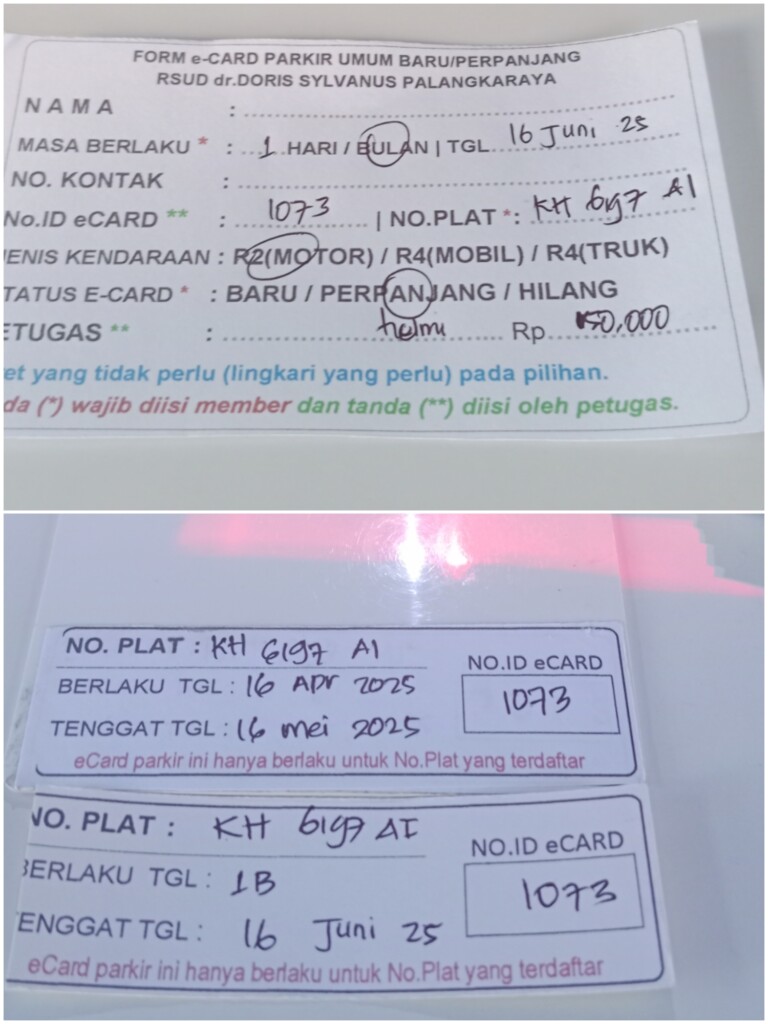 FORM e-CARD PARKIR UMUM BARU/PERPANJANG
RSUD dr.DORIS SYLVANUS PALANGKARAYA
NAMA :
MASA BERLAKU * : 1 HARI / BULAN | TGL 16 Juni 25
NO. KONTAK :
No.ID eCARD ** : 1073 | NO.PLAT *: KH 6197 AI
ENIS KENDARAAN : R2(MOTOR) / R4(MOBIL) / R4(TRUK)
TATUS E-CARD * : BARU / PERPANJANG / HILANG
ETUGAS ** : helmi Rp 50,000
et yang tidak perlu (lingkari yang perlu) pada pilihan.
da (*) wajib diisi member dan tanda (**) diisi oleh petugas.
NO. PLAT : KH 6197 AI
NO.ID eCARD
BERLAKU TGL : 16 APr 2025
1073
TENGGAT TGL : 16 mei 2025
eCard parkir ini hanya berlaku untuk No.Plat yang terdaftar
NO. PLAT : KH 6197 AI
NO.ID eCARD
BERLAKU TGL : 1B
1073
ENGGAT TGL : 16 Juni 25
eCard parkir ini hanya berlaku untuk No.Plat yang terdaftar